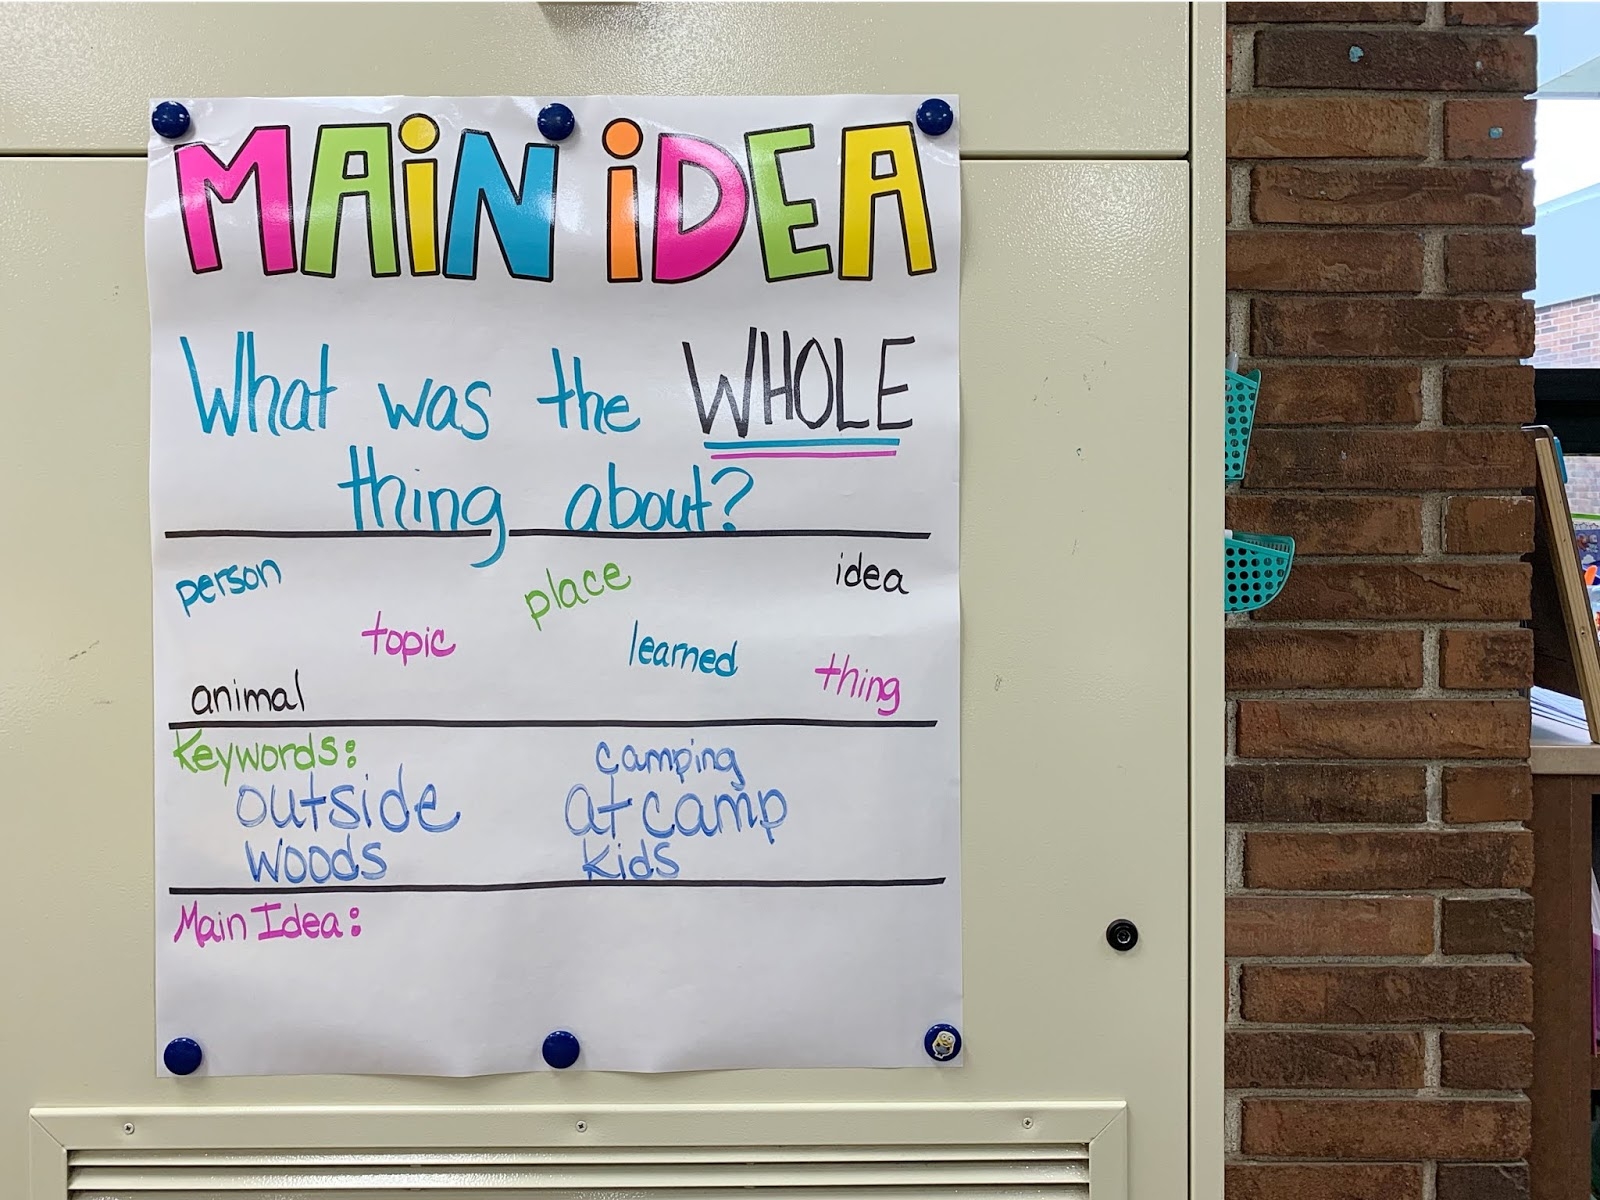 MAiN iDEA
What was the WHOLE
thing about?
person place idea
topic learned thing
animal
Keywords: camping
outside at camp
woods kids
Main Idea: